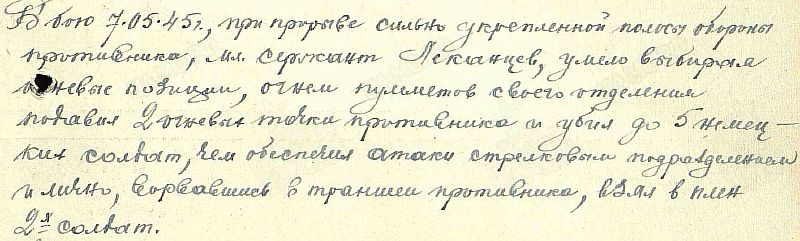 В бою 7.05.45г., при прорыве сильно укрепленной полосы обороны
противника, мл. сержант Леканцев, умело выбирая
огневые позиции, огнем пулеметов своего отделения
подавил 2 огневых точки противника и убил до 5 немец-
ких солдат, чем обеспечил атаки стрелковым подразделением
и лично, ворвавшись в траншеи противника, взял в плен
2х солдат.